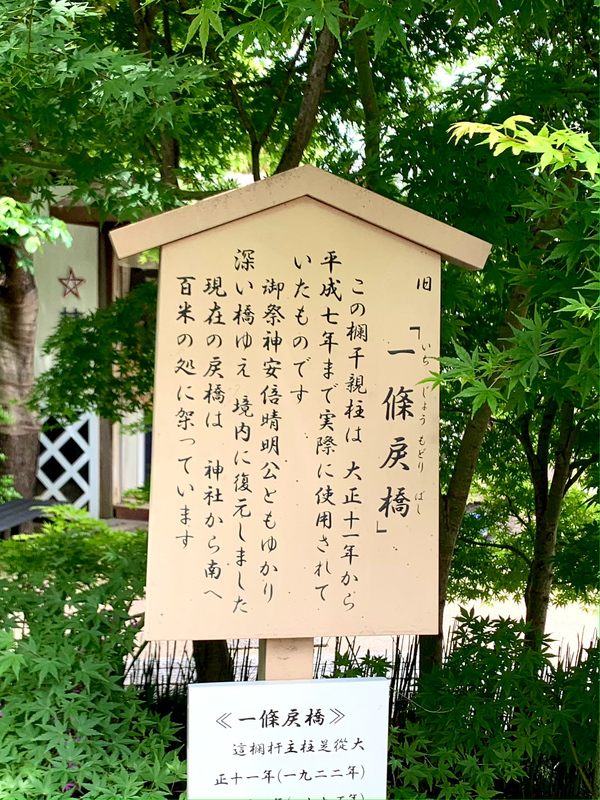 旧
「一條戻橋」
いち じょう もどり ばし
この欄干親柱は 大正十一年から
平成七年まで実際に使用されて
いたものです
御祭神安倍晴明公ともゆかり
深い橋ゆえ 境内に復元しました
現在の戻橋は 神社から南へ
百米の処に架っています
≪一條戻橋≫
這欄杆主柱是從大
正十一年(一九二二年)